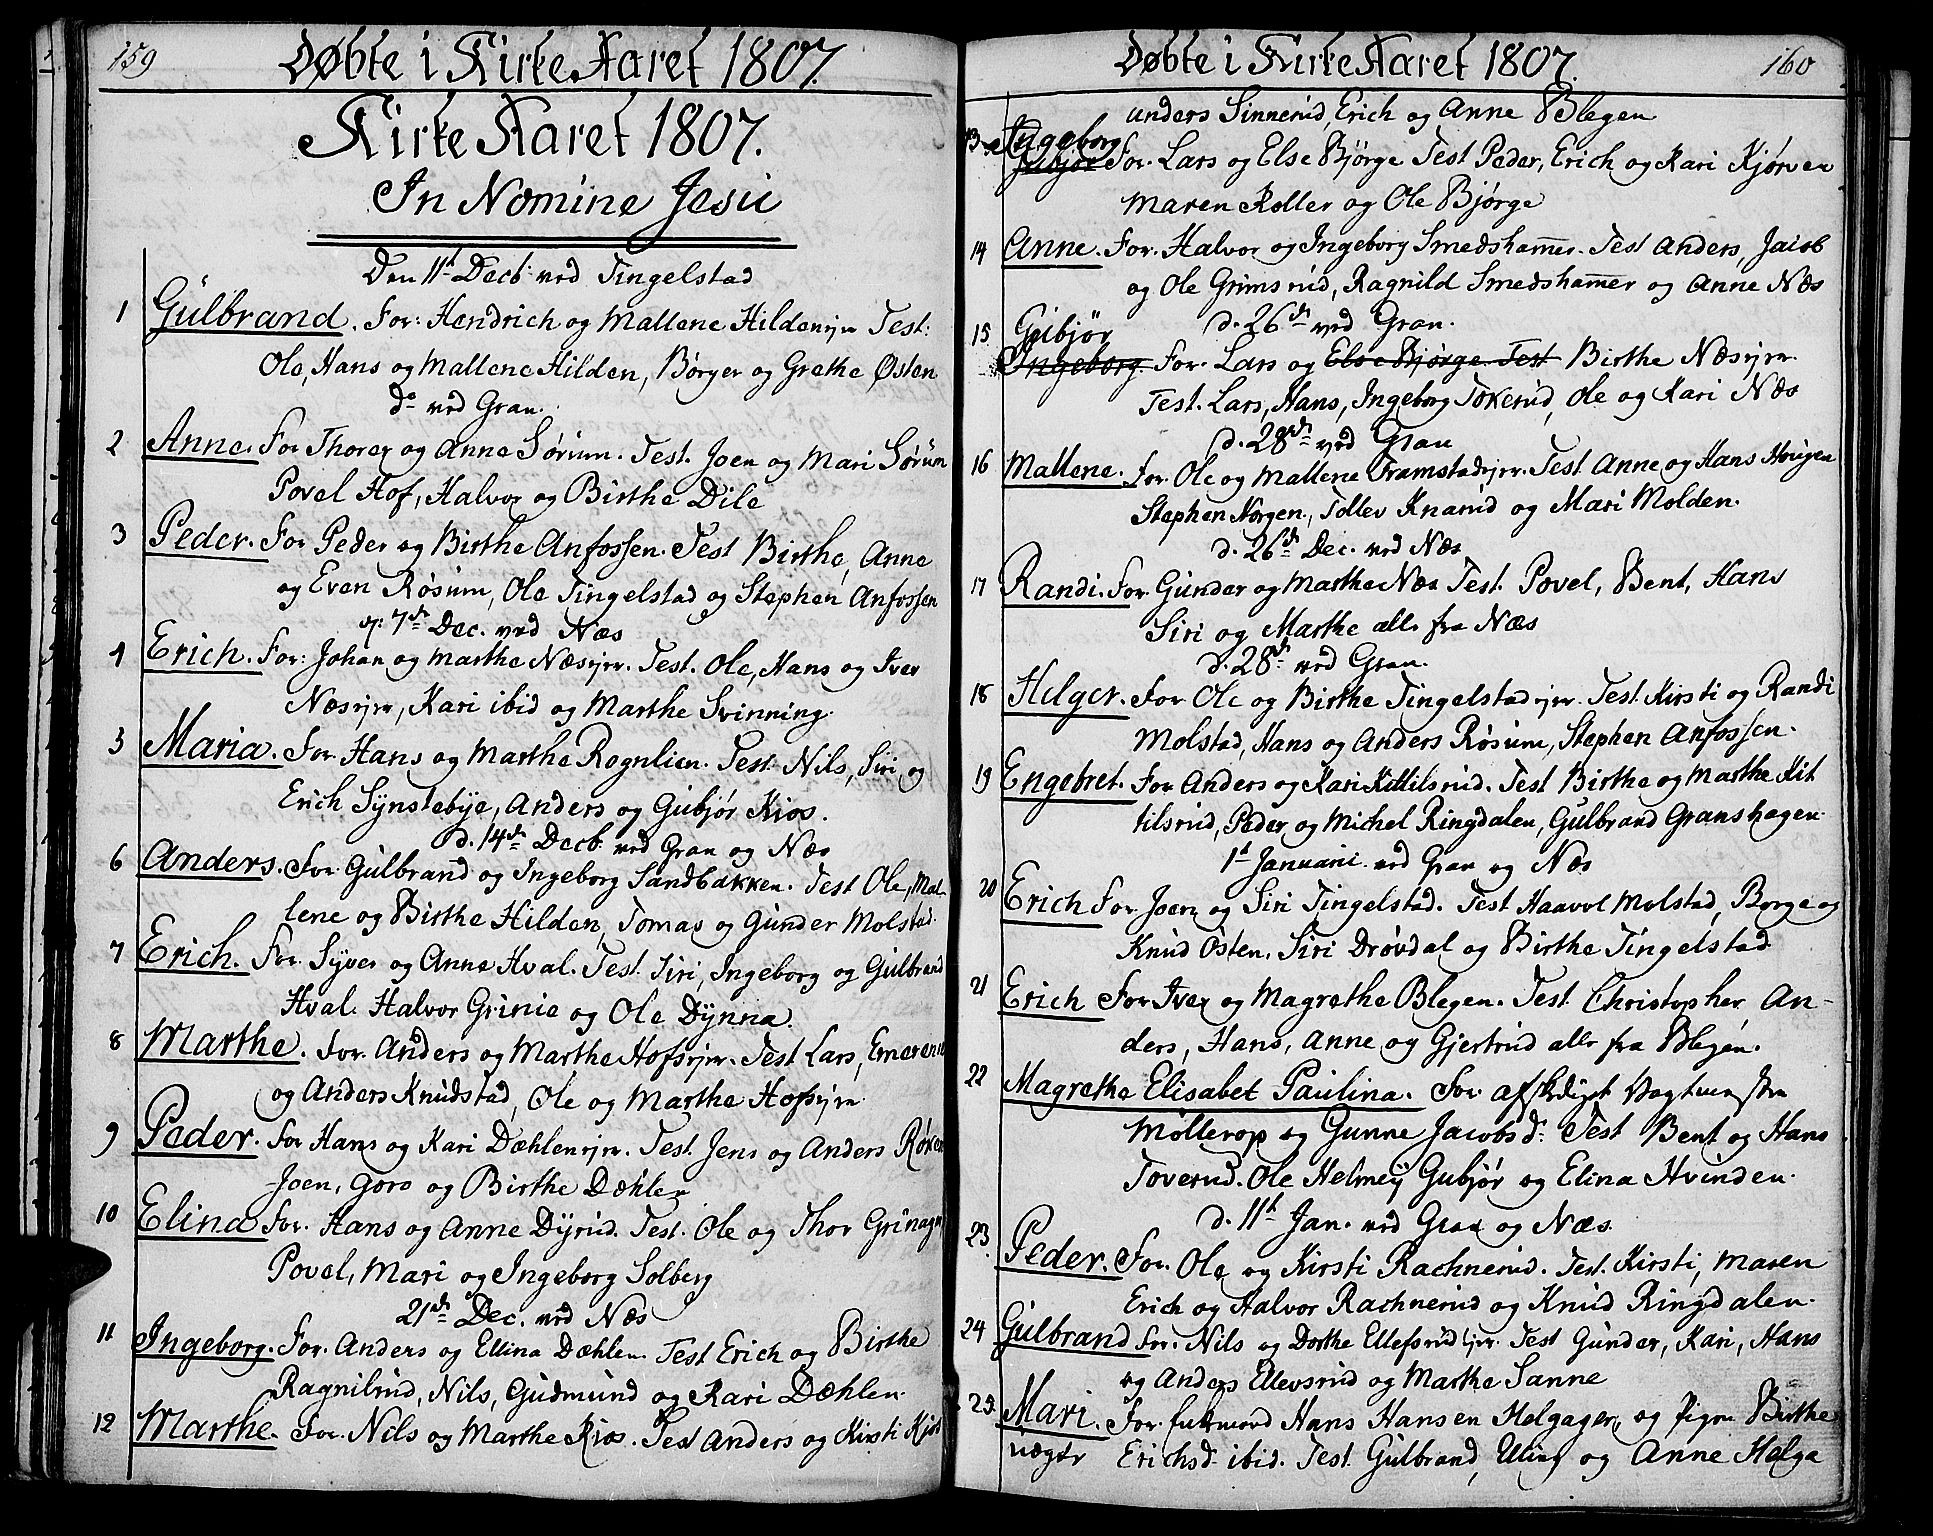 159
Døbte i Kirke Aaret 1807.
Kirke Aaret 1807.
In Nomine Jesu
Den 11t Decb: ved Tingelstad
1 Gulbrand. For: Hendrich og Mallene Hildenejer Test:
Ole, Hans og Mallene Hilden, Børger og Grethe Østen
do ved Gran.
2 Anne. For Thorer og Anne Sørum. Test. Joen og Mari Sørum
Povel Hof, Halvor og Birthe Dile
3 Peder. For Peder og Birthe Anfossen. Test Birthe, Anne
og Even Røsum, Ole Tingelstad og Stephen Anfossen
d. 7de Dec. ved Næs
4 Erich. For: Johan og Marthe Næsejer. Test. Ole, Hans og Iver
Næsejer, Kari ibid og Marthe Svinning.
5 Maria. For. Hans og Marthe Rognlien. Test. Nils, Siri og
Erich Synstebye, Anders og Gubjør Kios.
d. 14de Decb ved Gran og Næs
6 Anders. For Gulbrand og Ingeborg Sandbakken. Test Ole, Mal-
lene og Birthe Hilden, Tomas og Gunder Molstad.
7 Erich. For Syver og Anne Hval. Test. Siri, Ingeborg og Gulbrand
Hval. Halvor Grinie og Ole Dynna.
8 Marthe. For. Anders og Marthe Hofsejer. Test Lars, Emerense
og Anders Knudstad, Ole og Marthe Hofsejer
9 Peder. For Hans og Kari Dæhlenejer. Test. Jens og Anders Røken
Joen, Goro og Birthe Dæhlen
10 Elina For. Hans og Anne Dyrud. Test. Ole og Thor Grinager
Povel, Mari og Ingeborg Solberg
21de Dec. ved Næs
11 Ingeborg. For. Anders og Ellina Dæhlen. Test Erich og Birthe
Ragnilrud, Nils, Gudmund og Kari Dæhlen.
12 Marthe. For. Nils og Marthe Kios. Test Anders og Kirsti Kios
Døbte i Kirke Aaret 1807.
160
unders Sinnerud, Erich og Anne Blegen
13 Ingeborg
Gubjør For. Lars og Else Bjørge Test Peder, Erich og Kari Kjørven
Maren Koller og Ole Bjørge
14 Anne. For. Halvor og Ingeborg Smedshammer. Test Anders, Jacob
og Ole Grimsrud, Ragnild Smedshammer og Anne Næs
d. 26de ved Gran.
15 Gubjør
Ingeborg For. Lars og Else Bjørge Test Birthe Næsejer.
Test. Lars, Hans, Ingeborg Tokerud, Ole og Kari Næs
d. 28de ved Gran
16 Mallene. For. Ole og Mallene Framstadejer. Test Anne og Hans Hougen
Stephen Horgen, Tollev Knarud og Mari Molden.
d. 26de Dec. ved Næs
17 Randi. For. Gunder og Marthe Næs Test. Povel, Bent, Hans
Siri og Marthe alle fra Næs
d. 28de ved Gran.
18 Helger. For Ole og Birthe Tingelstadejer. Test Kirsti og Randi
Molstad, Hans og Anders Røsum, Stephen Anfossen.
19 Engebret. For Anders og Kari Kittilsrud. Test Birthe og Marthe Kit
tilsrud, Peder og Michel Ringdalen, Gulbrand Granshagen.
1t Januarii ved Gran og Næs
20 Erich For. Joen og Siri Tingelstad. Test Haavol Molstad, Borge og
Knud Østen. Siri Drøvdal og Birthe Tingelstad
21 Erich For Iver og Magrethe Blegen. Test Christopher An-
ders, Hans, Anne og Gjertrud alle fra Blegen.
22 Magrethe Elisabet Paulina. For. afskediget Vagtmester
Møllerop og Gunne Jacobsd: Test Bent og Hans
Toverud. Ole Helmey Gubjør og Elina Hvinden.
d. 11t Jan. ved Gran og Næs
23. Peder. For. Ole og Kirsti Rachnerud. Test. Kirsti, Maren
Erich og Halvor Rachnerud og Knud Ringdalen.
24 Gulbrand For. Nils og Dorthe Ellefsrudejer. Test Gunder, Kari, Hans
og Anders Ellevsrud og Marthe Sanne
25. Mari. For. Hans Hansen Helgager og Pigen Birthe
uægte Erichsd. ibid. Test. Gulbrand, og Anne Helga